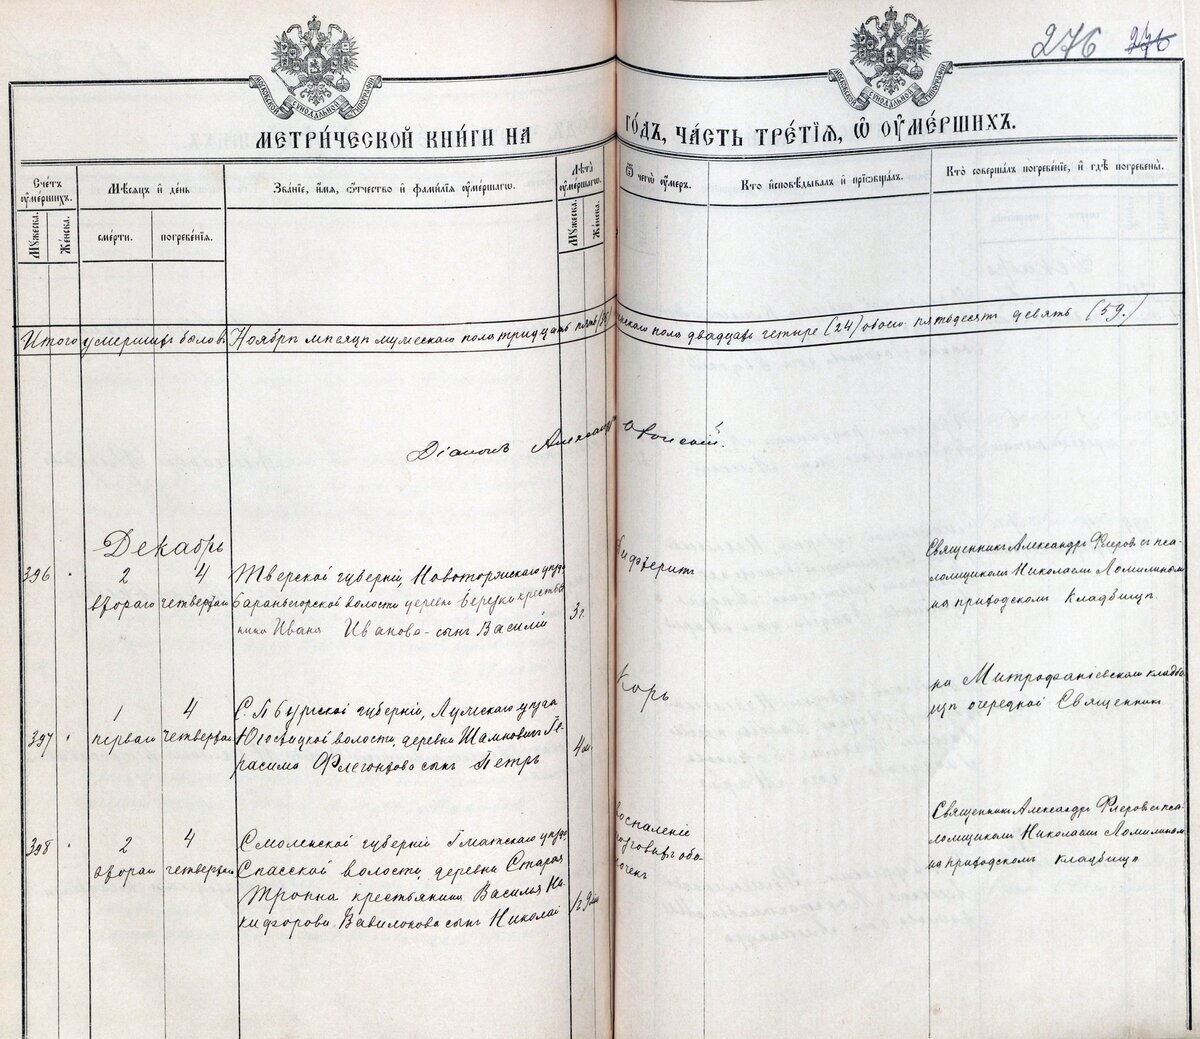 276 276
МОСКОВСКОЙ СѴНОДАЛЬНОЙ ТИПОГРАФІИ МОСКОВСКОЙ СѴНОДАЛЬНОЙ ТИПОГРАФІИ
МЕТРИ́ЧЕСКОЙ КНИ́ГИ НА ГО́ДЪ, ЧА́СТЬ ТРЕ́ТІЯ, Ѡ ОУМЕ́РШИХЪ.
Сче́тъ оуме́ршихъ.
Мꙋ́жеска.
Же́нска.
Мѣ́сяцъ и҆ де́нь
сме́рти.
погребе́нїя.
Зва́нїе, и҆́мя, ѻ҆́тчество и҆ фами́лїя оуме́ршагѡ.
Лѣ́та оуме́ршагѡ.
Мꙋ́жеска.
Же́нска.
Ѿ чегѡ̀ оу҆́меръ.
Кто̀ и҆сповѣ́дывалъ и҆ прїѡбща́лъ.
Кто̀ соверша́лъ погребе́нїе, и҆ гдѣ̀ погребены̀.
Итого умершихъ было въ Ноябрѣ мѣсяцѣ мужескаго пола тридцать пять (35) женскаго пола двадцать четыре (24) обоего пятьдесятъ девять (59.)
Діаконъ Александръ
Декабрь
396
2
второго
4
четвертаго
Тверской губерніи, Новоторжскаго уѣзда
Бараньегорской волости деревни Березки крестья-
нина Ивана Иванова - сынъ Василій
3 г.
Дифтеритъ
Священникъ Александръ Флеровъ съ пса-
ломщикомъ Николаемъ Ломилинымъ
на приходскомъ кладбищѣ.
397
1
перваго
4
четвертаго
С.П.Бургской губерніи, Лужскаго уѣзда
волости, деревни Ге-
расима Флегонтова сынъ Петръ
4 м.
Корь
на Митрофаніевскомъ кладби-
щѣ очередной Священникъ
398
2
второго
4
четвертаго
Смоленской губерніи Гжатскаго уѣзда
Спасской волости, деревни Старая
крестьянина Василія Ни-
кифорова Вавилонова сынъ Николай
1 г. 9 мѣс
Воспаленіе
мозговыхъ обо-
лочекъ
Священникъ Александръ Флеровъ съ пса-
ломщикомъ Николаемъ Ломилинымъ
на приходскомъ кладбищѣ